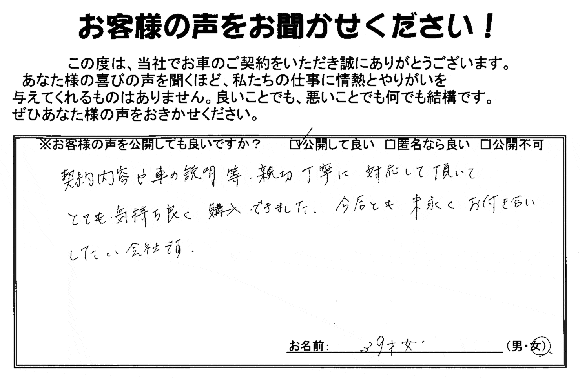 お客様の声をお聞かせください！
この度は、当社でお車のご契約をいただき誠にありがとうございます。
あなた様の喜びの声を聞くほど、私たちの仕事に情熱とやりがいを
与えてくれるものはありません。良いことでも、悪いことでも何でも結構です。
ぜひあなた様の声をおきかせください。
※お客様の声を公開しても良いですか？ □公開して良い □匿名なら良い □公開不可
契約内容や車の説明等、親切丁寧に対応して頂いて
とても気持ち良く購入できました。今后とも末永くお付き合い
したい会社
お名前： (男・女)